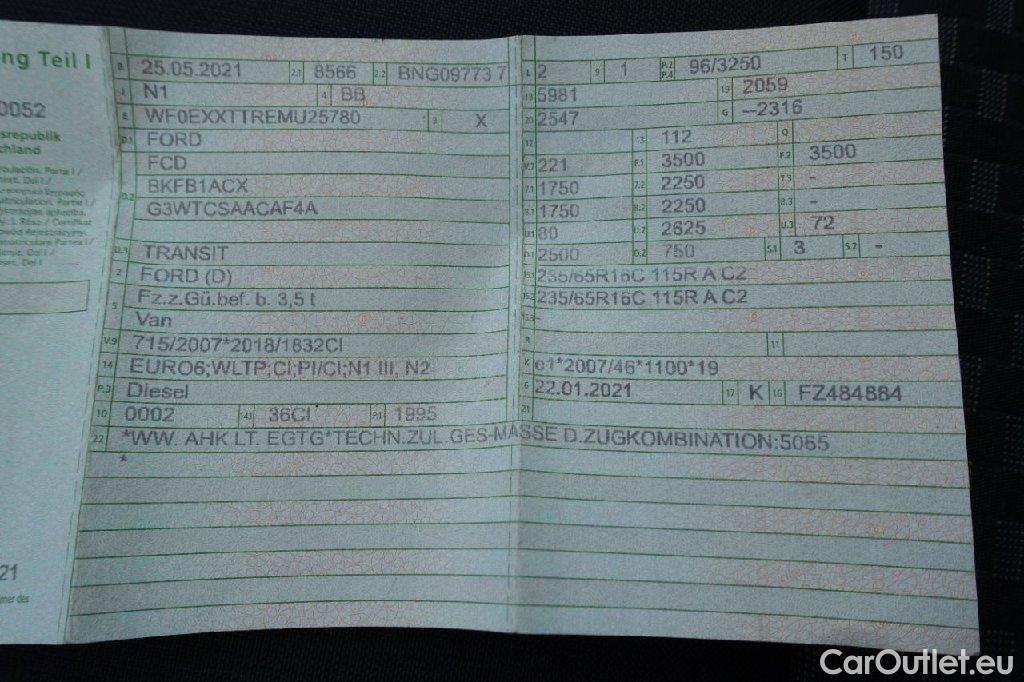 ng Teil I
0052
srepublik
chland
21
B 25.05.2021 2.1 8566 2.2 BNG09773 7
J N1 4 BB
E WF0EXXTTREMU25780 3 X
D.1 FORD
FCD
D.2 BKFB1ACX
G3WTCSAACAF4A
D.3 TRANSIT
2 FORD (D)
5 Fz.z.Gü.bef. b. 3,5 t
Van
V.9 715/2007*2018/1832CI
14 EURO6;WLTP;CI;PI/CI;N1 III, N2
P.3 Diesel
10 0002 14.1 36CI P.1 1995
L 2 9 1 P.2 P.4 96/3250 T 150
18 5981 19 2059
20 2547 G --2316
12 13 112 Q
V.7 221 F.1 3500 F.2 3500
7.1 1750 7.2 2250 7.3 -
8.1 1750 8.2 2250 8.3 -
U.1 80 U.2 2625 U.3 72
O.1 2500 O.2 750 S.1 3 S.2 -
15.1 235/65R16C 115R A C2
15.2 235/65R16C 115R A C2
15.3 -
R 11
K e1*2007/46*1100*19
6 22.01.2021 17 K 16 FZ484884
21
22 *WW. AHK LT. EGTG*TECHN.ZUL.GES-MASSE D.ZUGKOMBINATION:5065
*
CarOutlet.eu